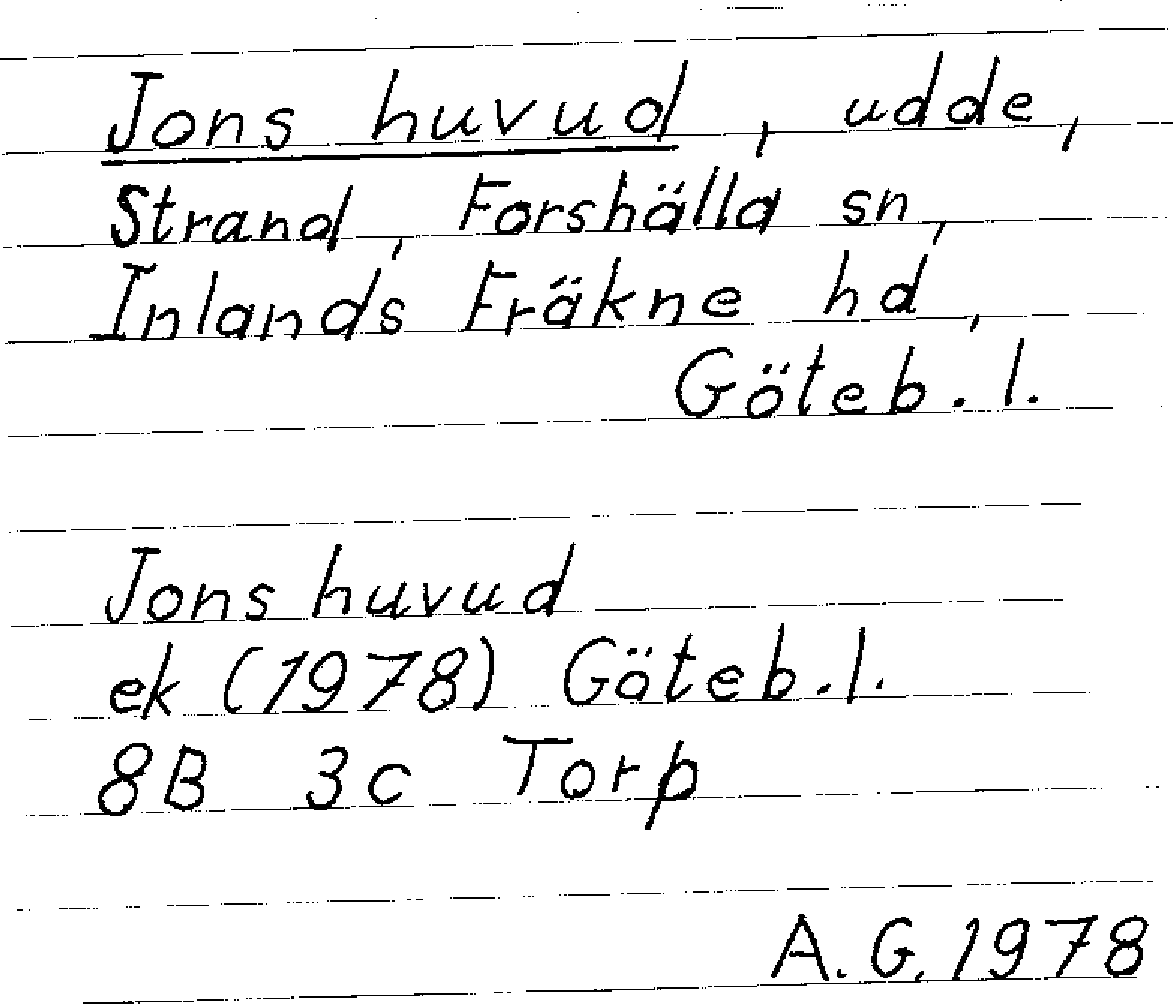 Jons huvud, udde,
Strand, Forshälla sn,
Inlands Fräkne hd,
Göteb. l.
Jons huvud
ek (1978) Göteb. l.
8B 3c Torp
A. G. 1978